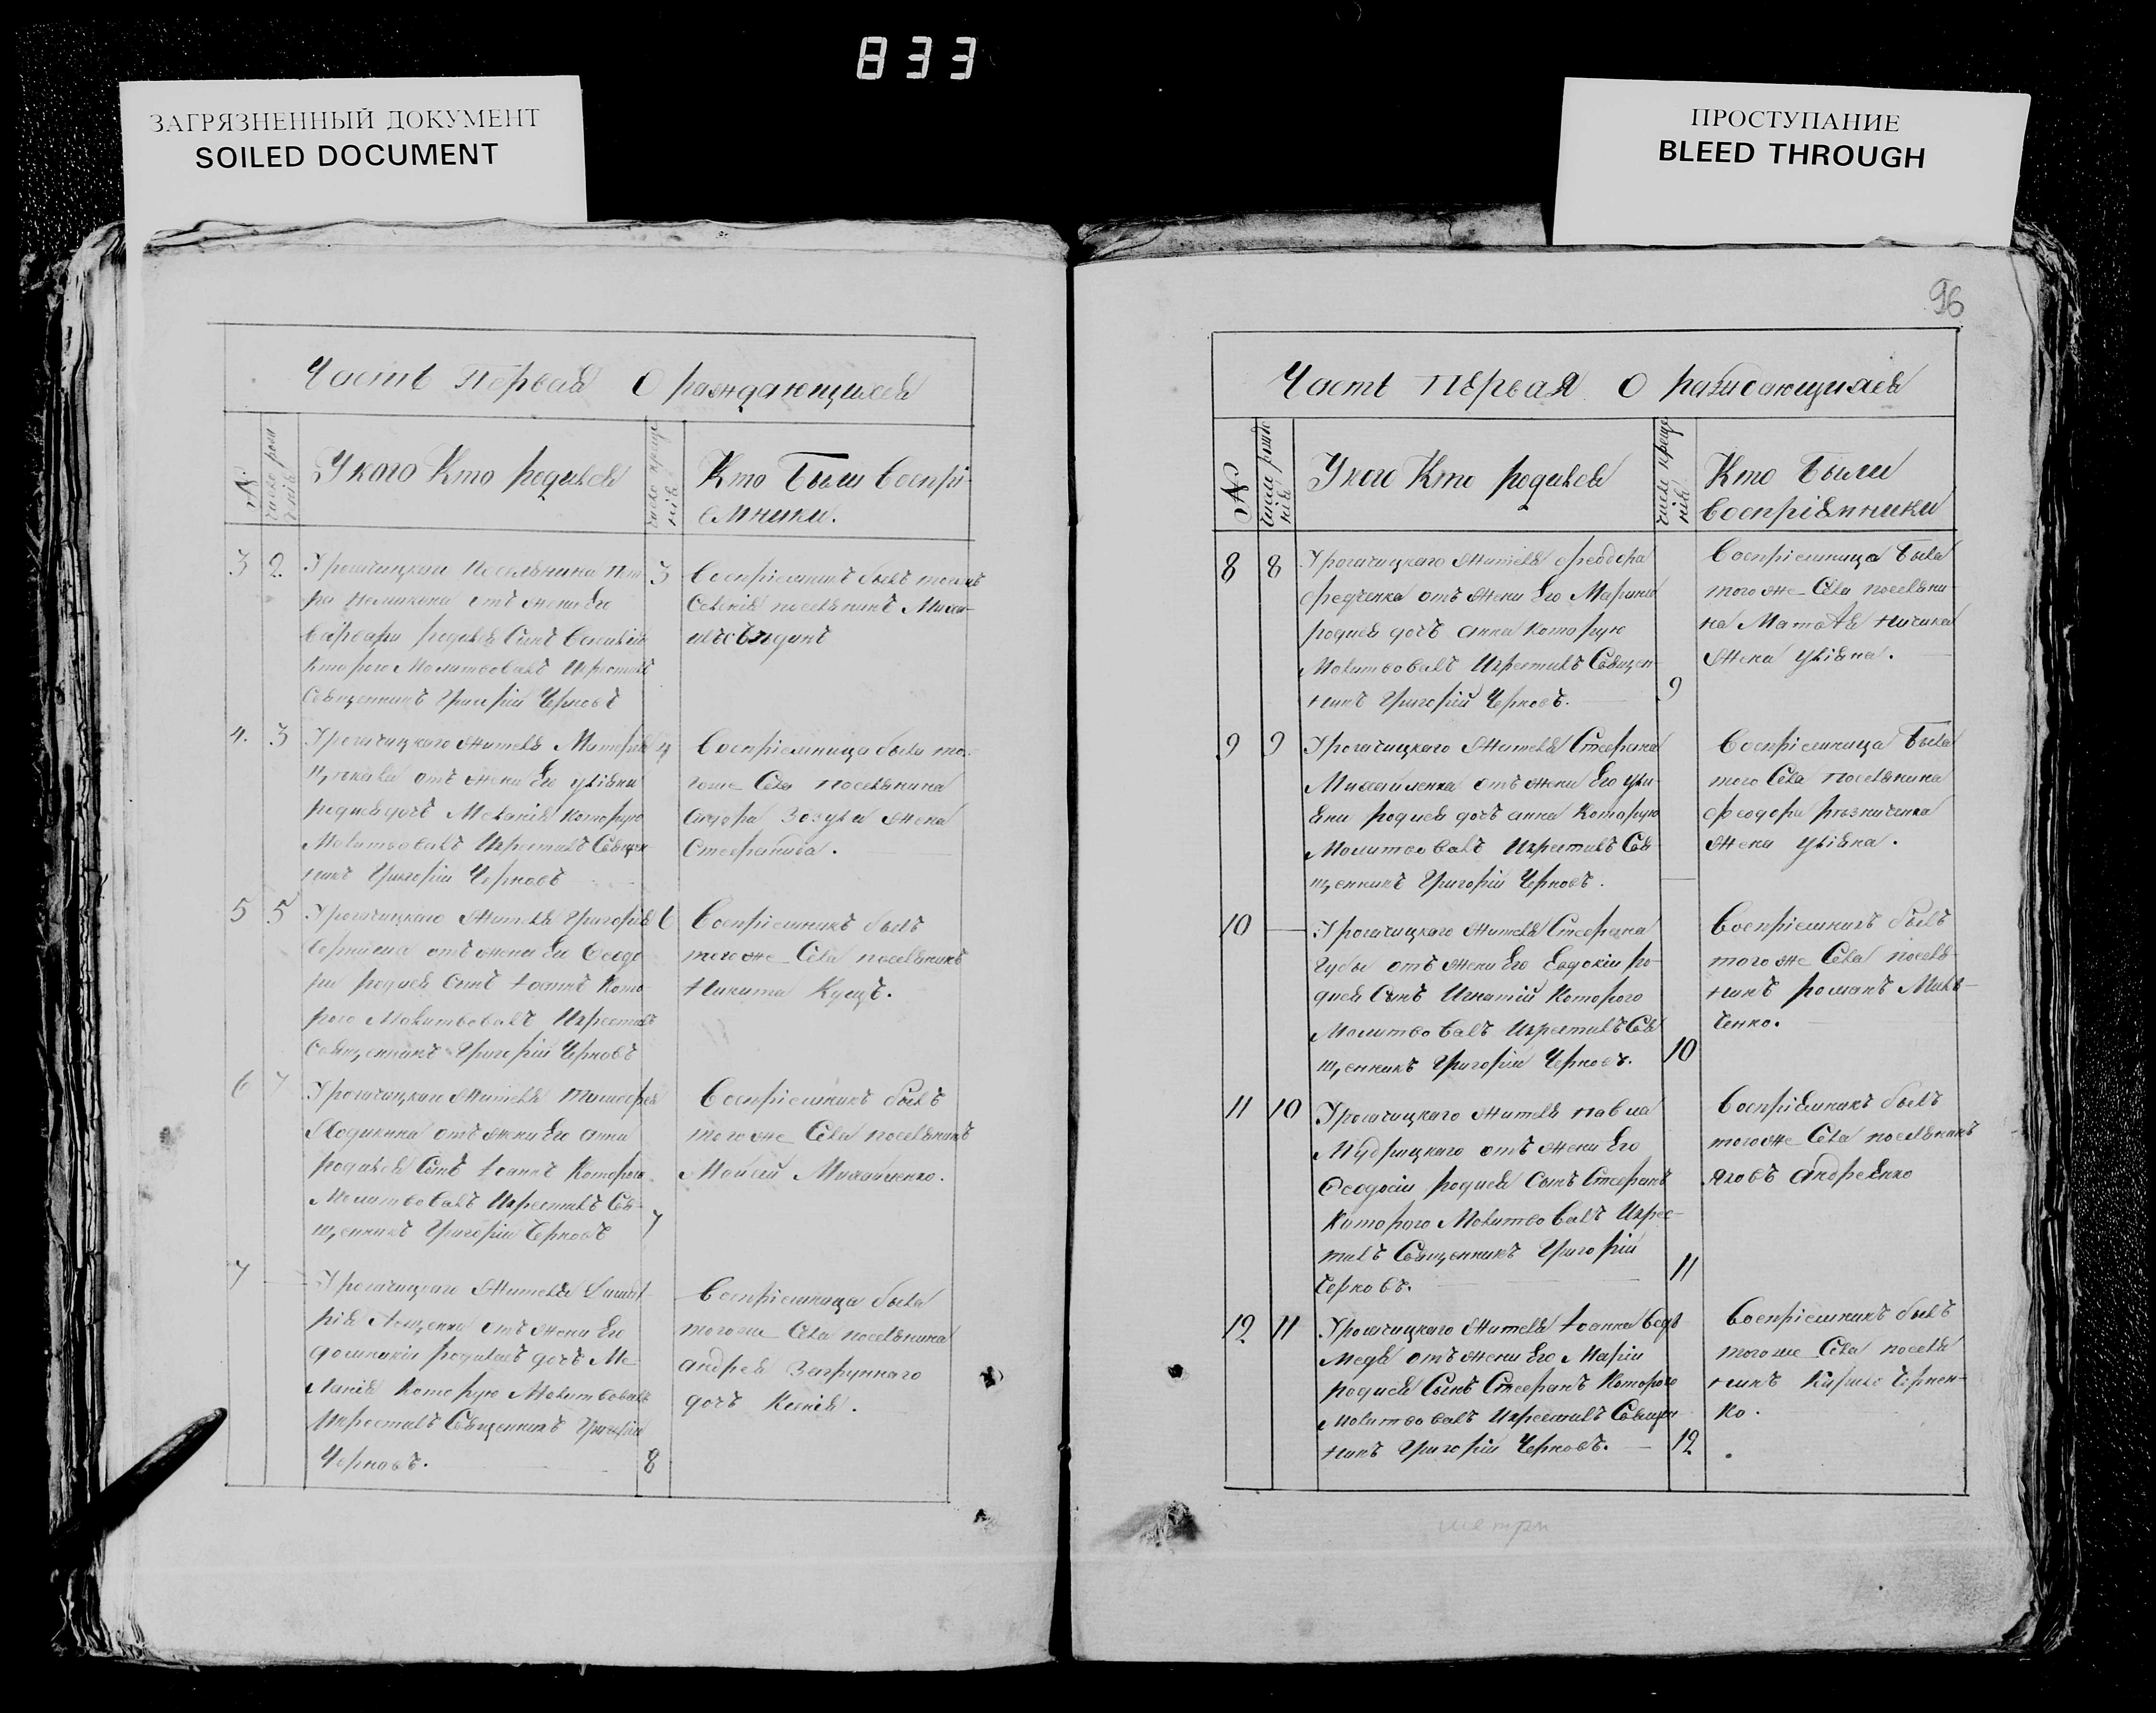 833
ЗАГРЯЗНЕННЫЙ ДОКУМЕНТ
SOILED DOCUMENT
ПРОСТУПАНИЕ
BLEED THROUGH
Часть Первая О раждающихся
№
число рож
Укого Кто родился
число креще
нія
Кто Были Воспрі-
емники.
3 2.
отъ жены Его
Варвары родився Сынъ Василій
Которого Молитвовалъ Икрестилъ
Священникъ Григорій Черновъ
3
Воспріемникъ былъ
Селенія поселянинъ
4. 3
Урогачицкаго жителя
отъ жены Его Уліяны
родися дочь Меланія которую
Молитвовалъ Икрестилъ Священ
никъ Григорій Черновъ
4
Воспріемница была то-
гоже Села поселянина
Зозули жена
5 5
Урогачицкаго жителя Григорія
отъ жены Его Феодо
родися Сынъ Іоаннъ Кото
рого Молитвовалъ Икрестилъ
Священникъ Григорій Черновъ
6
Воспріемникъ былъ
того же Села поселянинъ
Никита Куцъ.
6 7
Урогачицкаго жителя Тимофея
отъ жены Его Анны
родился Сынъ Іоаннъ Которого
Молитвовалъ Икрестилъ Свя-
щенникъ Григорій Черновъ
7
Воспріемникъ былъ
того же Села поселянинъ
Моисей Михайленко.
7
Урогачицкаго жителя Димит-
рія отъ жены Его
родилась дочь Ме-
ланія Которую Молитвовалъ
Икрестилъ Священникъ Григорій
Черновъ.
8
Воспріемница была
тогоже Села поселянина
Андрея
дочь Ксенія.
96
Часть Первая О раждающихся
№
число рожде
нія
Укого Кто родился
число креще
нія
Кто Были
Воспріемники
8 8
Урогачицкаго жителя Феодора
Федченка отъ жены Его Марины
родися дочь Анна Которую
Молитвовалъ Икрестилъ Священ-
никъ Григорій Черновъ.
9
Воспріемница Была
того же Села поселяни-
на
жена Уліяна.
9 9
Урогачицкаго жителя Стефана
Михайленка отъ жены Его Ули-
яны родися дочь Анна Которую
Молитвовалъ Икрестилъ Свя
щенникъ Григорій Черновъ.
Воспріемница Была
того Села поселянина
Феодора Рѣзниченка
жена Уліяна.
10
Урогачицкаго жителя Стефана
Губы отъ жены Его Евдокіи ро-
дися Сынъ Игнатій Которого
Молитвовалъ Икрестилъ Свя
щенникъ Григорій Черновъ.
10
Воспріемникъ былъ
того же Села поселя-
нинъ Романъ
ченко.
11 10
Урогачицкаго жителя Павла
Мудрицкаго отъ жены Его
Феодосіи родися Сынъ Стефанъ
Которого Молитвовалъ Икрес-
тилъ Священникъ Григорій
Черновъ.
11
Воспріемникъ былъ
тогоже Села поселянинъ
Яковъ Андреенко
12 11
Урогачицкаго жителя Іоанна
отъ жены Его Маріи
родися Сынъ Стефанъ Которого
Молитвовалъ Икрестилъ Священ
никъ Григорій Черновъ.
12
Воспріемникъ былъ
тогоже Села поселя
нинъ Кирило Чернен-
ко.